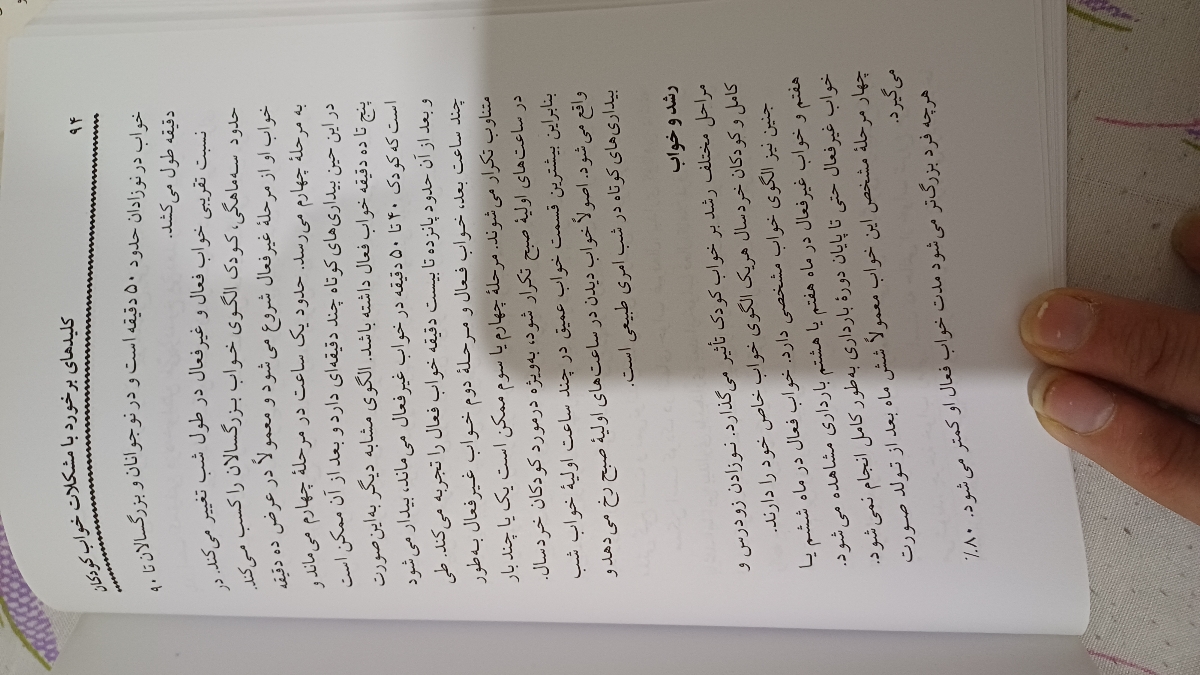 ۹۴
کلیدهای برخورد با مشکلات خواب کودکان
خواب در نوزادان حدود ۵۰ دقیقه است و در نوجوانان و بزرگسالان تا ۹۰
دقیقه طول می‌کشد.
نسبت تقریبی خواب فعال و غیرفعال در طول شب تغییر می‌کند. در
حدود سه‌ماهگی، کودک الگوی خواب بزرگسالان را کسب می‌کند.
خواب او از مرحلهٔ غیرفعال شروع می‌شود و معمولاً در عرض ده دقیقه
به مرحلهٔ چهارم می‌رسد. حدود یک ساعت در مرحلهٔ چهارم می‌ماند و
در این حین بیداری‌های کوتاه چند دقیقه‌ای دارد و بعد از آن ممکن است
پنج تا ده دقیقه خواب فعال داشته باشد. الگوی مشابه دیگر به‌این صورت
است که کودک ۴۰ تا ۵۰ دقیقه در خواب غیرفعال می‌ماند، بیدار می‌شود
و بعد از آن حدود پانزده تا بیست دقیقه خواب فعال را تجربه می‌کند. طی
چند ساعت بعد، خواب فعال و مرحلهٔ دوم خواب غیرفعال به‌طور
متناوب تکرار می‌شوند. مرحلهٔ چهارم یا سوم ممکن است یک یا چند بار
در ساعت‌های اولیهٔ صبح تکرار شود، به‌ویژه درمورد کودکان خردسال.
بنابراین بیشترین قسمت خواب عمیق در چند ساعت اولیهٔ خواب شب
واقع می‌شود. اصولاً خواب دیدن در ساعت‌های اولیهٔ صبح رخ می‌دهد و
بیداری‌های کوتاه در شب امری طبیعی است.
رشد و خواب
مراحل مختلف رشد بر خواب کودک تأثیر می‌گذارد. نوزادان زودرس و
کامل و کودکان خردسال هریک الگوی خواب خاص خود را دارند.
جنین نیز الگوی خواب مشخصی دارد. خواب فعال در ماه ششم یا
هفتم و خواب غیرفعال در ماه هفتم یا هشتم بارداری مشاهده می‌شود.
خواب غیرفعال حتی تا پایان دورهٔ بارداری به‌طور کامل انجام نمی‌شود.
چهار مرحلهٔ مشخص این خواب معمولاً شش ماه بعد از تولد صورت
می‌گیرد.
هرچه فرد بزرگ‌تر می‌شود مدت خواب فعال او کمتر می‌شود. ۸۰٪